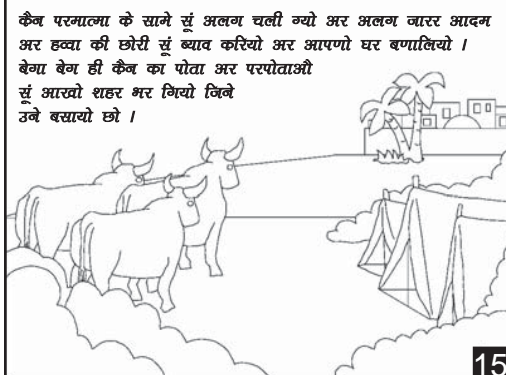 कैन परमात्मा के सामे सूं अलग चली ग्यो अर अलग जारर आदम
अर हव्वा की छोरी सूं ब्याव करियो अर आपणो घर बणालियो ।
बेगा बेग ही कैन का पोता अर परपोताऔ
सूं आखो शहर भर गियो जिने
उने बसायो छो ।
15